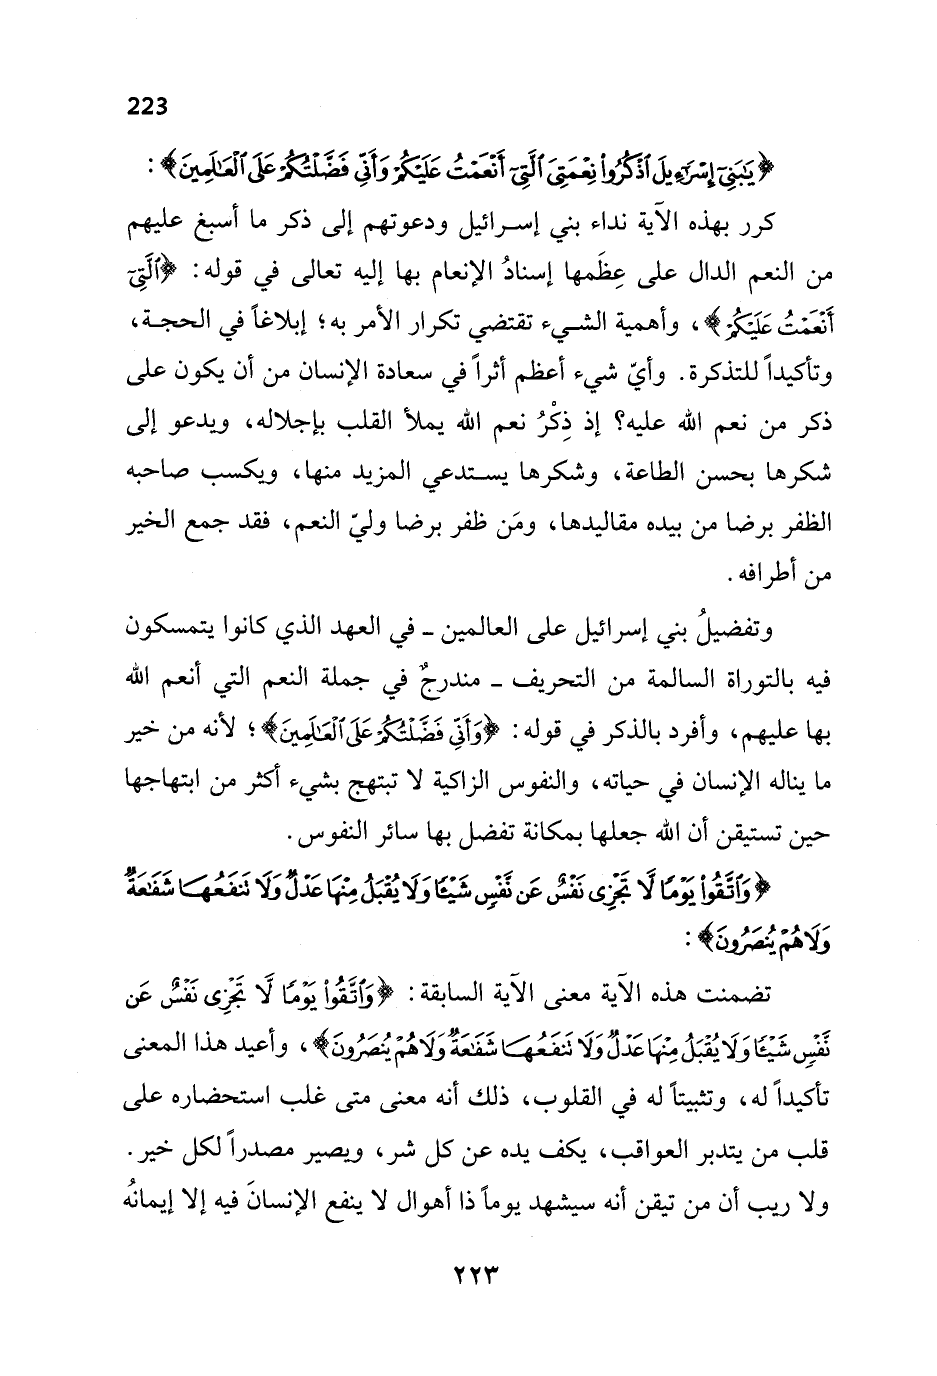 223
﴿يَٰبَنِيٓ إِسۡرَٰٓءِيلَ ٱذۡكُرُواْ نِعۡمَتِيَ ٱلَّتِيٓ أَنۡعَمۡتُ عَلَيۡكُمۡ وَأَنِّي فَضَّلۡتُكُمۡ عَلَى ٱلۡعَٰلَمِينَ﴾:
كرر بهذه الآية نداء بني إسرائيل ودعوتهم إلى ذكر ما أسبغ عليهم
من النعم الدال على عِظَمها إسنادُ الإنعام بها إليه تعالى في قوله: ﴿ٱلَّتِيٓ
أَنۡعَمۡتُ عَلَيۡكُمۡ﴾، وأهمية الشيء تقتضي تكرار الأمر به؛ إبلاغاً في الحجة،
وتأكيداً للتذكرة. وأيّ شيء أعظم أثراً في سعادة الإنسان من أن يكون على
ذكر من نعم الله عليه؟ إذ ذِكْرُ نعم الله يملأ القلب بإجلاله، ويدعو إلى
شكرها بحسن الطاعة، وشكرها يستدعي المزيد منها، ويكسب صاحبه
الظفر برضا من بيده مقاليدها، ومَن ظفر برضا وليّ النعم، فقد جمع الخير
من أطرافه.
وتفضيلُ بني إسرائيل على العالمين ـ في العهد الذي كانوا يتمسكون
فيه بالتوراة السالمة من التحريف ـ مندرجٌ في جملة النعم التي أنعم الله
بها عليهم، وأفرد بالذكر في قوله: ﴿وَأَنِّي فَضَّلۡتُكُمۡ عَلَى ٱلۡعَٰلَمِينَ﴾؛ لأنه من خير
ما يناله الإنسان في حياته، والنفوس الزاكية لا تبتهج بشيء أكثر من ابتهاجها
حين تستيقن أن الله جعلها بمكانة تفضل بها سائر النفوس.
﴿وَٱتَّقُواْ يَوۡمٗا لَّا تَجۡزِي نَفۡسٌ عَن نَّفۡسٖ شَيۡـٔٗا وَلَا يُقۡبَلُ مِنۡهَا عَدۡلٞ وَلَا تَنفَعُهَا شَفَٰعَةٞ
وَلَا هُمۡ يُنصَرُونَ﴾:
تضمنت هذه الآية معنى الآية السابقة: ﴿وَٱتَّقُواْ يَوۡمٗا لَّا تَجۡزِي نَفۡسٌ عَن
نَّفۡسٖ شَيۡـٔٗا وَلَا يُقۡبَلُ مِنۡهَا عَدۡلٞ وَلَا تَنفَعُهَا شَفَٰعَةٞ وَلَا هُمۡ يُنصَرُونَ﴾، وأعيد هذا المعنى
تأكيداً له، وتثبيتاً له في القلوب، ذلك أنه معنى متى غلب استحضاره على
قلب من يتدبر العواقب، يكف يده عن كل شر، ويصير مصدراً لكل خير.
ولا ريب أن من تيقن أنه سيشهد يوماً ذا أهوال لا ينفع الإنسانَ فيه إلا إيمانُه
٢٢٣